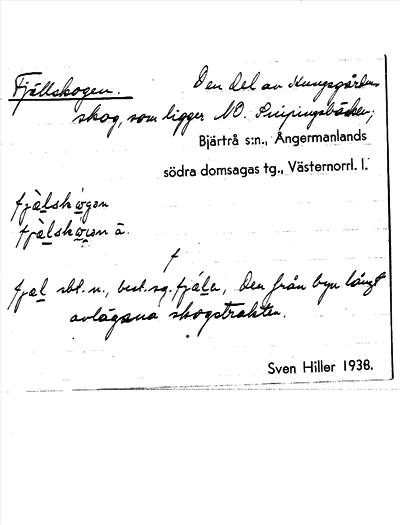 Fjällskogen. Den del av Kungsgården
skog, som ligger NO.
Bjärtrå s:n., Ångermanlands
södra domsagas tg., Västernorrl. l.
fjälskògen
fjälskògen ä.
f
fjal sbt. n., best. sg. fjála, den från byn långt
avlägsna skogstrakten.
Sven Hiller 1938.